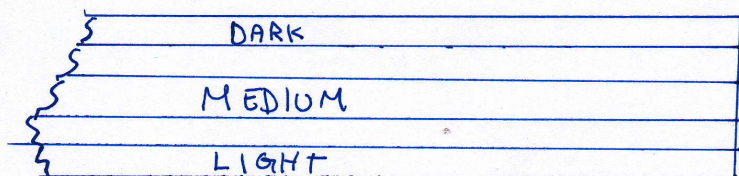 DARK
MEDIUM
LIGHT